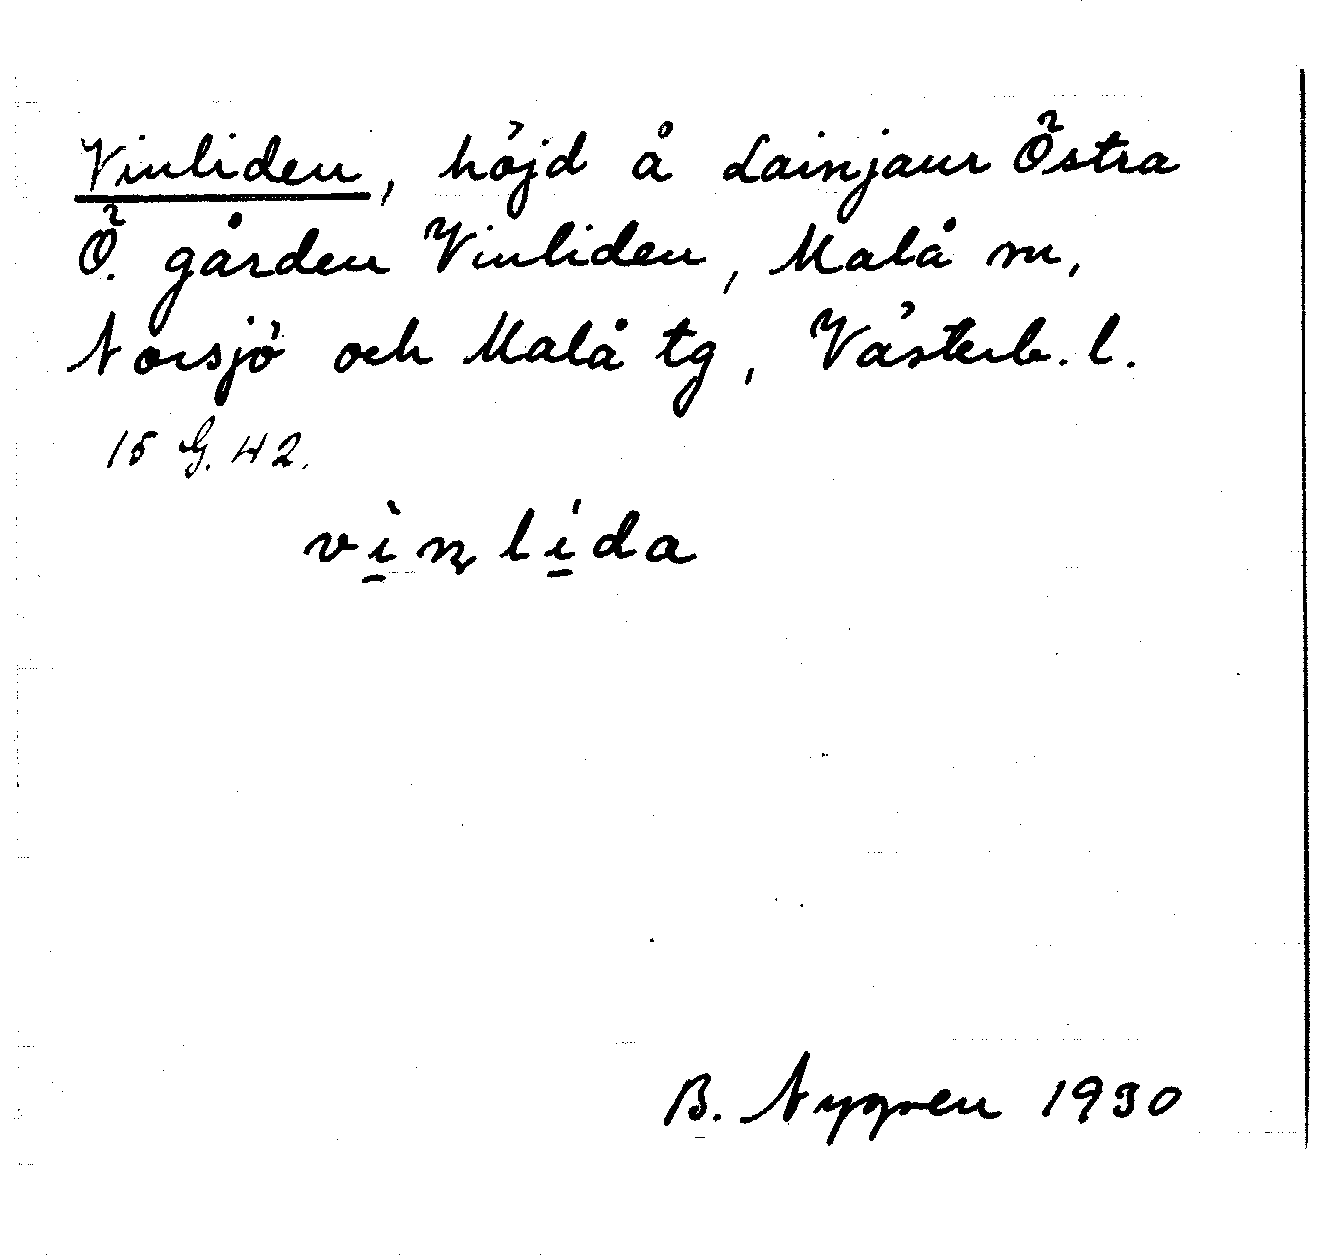 Vinliden, höjd å Lainjaur Östra
Ö. gården Vinliden, Malå sn,
Norsjö och Malå tg, Västerb. l.
15 G. 42.
vìn̨lída
B. Nygren 1930